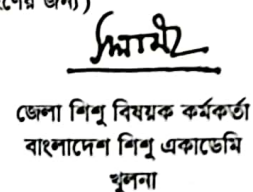 জেলা শিশু বিষয়ক কর্মকর্তা
বাংলাদেশ শিশু একাডেমি
খুলনা